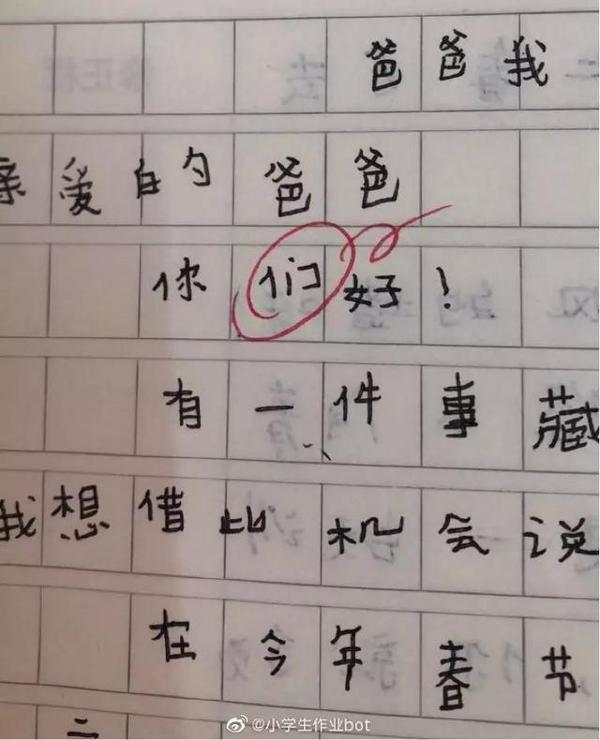 爸爸我
亲爱的爸爸
你们好！
有一件事藏
我想借比机会说
在今年春节
二
@小学生作业bot